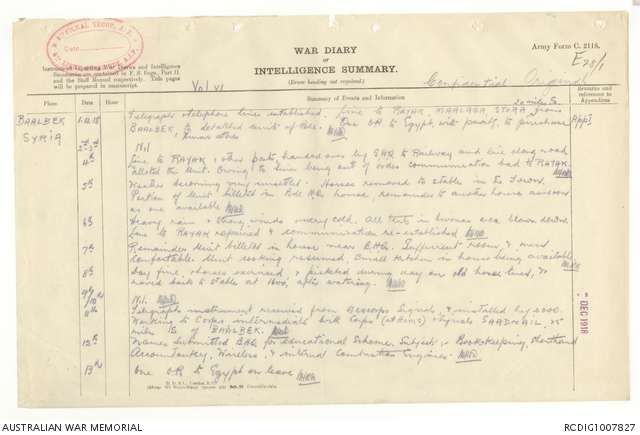 WAR DIARY
or
INTELLIGENCE SUMMARY.
(Erase heading not required.)
Army Form C. 2118.
E 28/1
Confidential Original
Vol VI
Instructions regarding War Diaries and Intelligence
Summaries are contained in F. S. Regs., Part II.
and the Staff Manual respectively. Title pages
will be prepared in manuscript.
Place Date Summary of Events and Information Remarks and references to Appendices
BAALBEK SYRIA 1.12.18 Telegraph & telephone lines established. Line to RAYAK MAALAGA from App I
BAALBEK, to detailed units of Bde. One OR to Egypt, with to purchase
Xmas stores
2nd-3rd Nil
4th Line to RAYAK, & other parts, handed over by to Railway and line along road
allotted the Unit. Owing to line being out of order communication bad to RAYAK.
5th Weather becoming very unsettled. Horses removed to stable in the Town.
Portion of Unit billeted in Bde HQrs house, remainder to another house as soon
as one available
6th Heavy rain & strong winds & very cold. All tents in bivouac area blown down.
Line to RAYAK repaired & communication re-established
7th Remainder Unit billeted in house near BHQ. Sufficient room, & most
comfortable. Unit cooking resumed, small kitchen in house being available
8th Day fine, horses exercised & picketed during day on old horse lines, &
moved back to stable at 1600, after watering.
9th/10th Nil.
11th Telegraph instrument received from Descorps Signals, & installed by 2000.
Working to Corps intermediate with Corps Signals SAADNAIL 25
miles S of BAALBEK.
12th Names submitted BHQ for Educational Scheme, Subjects:- Bookkeeping, Shorthand
Accountancy, Wireless, & internal Combustion Engines.
13th One O.R. to Egypt on leave
DEC 1918
AUSTRALIAN WAR MEMORIAL
RCDIG1007827